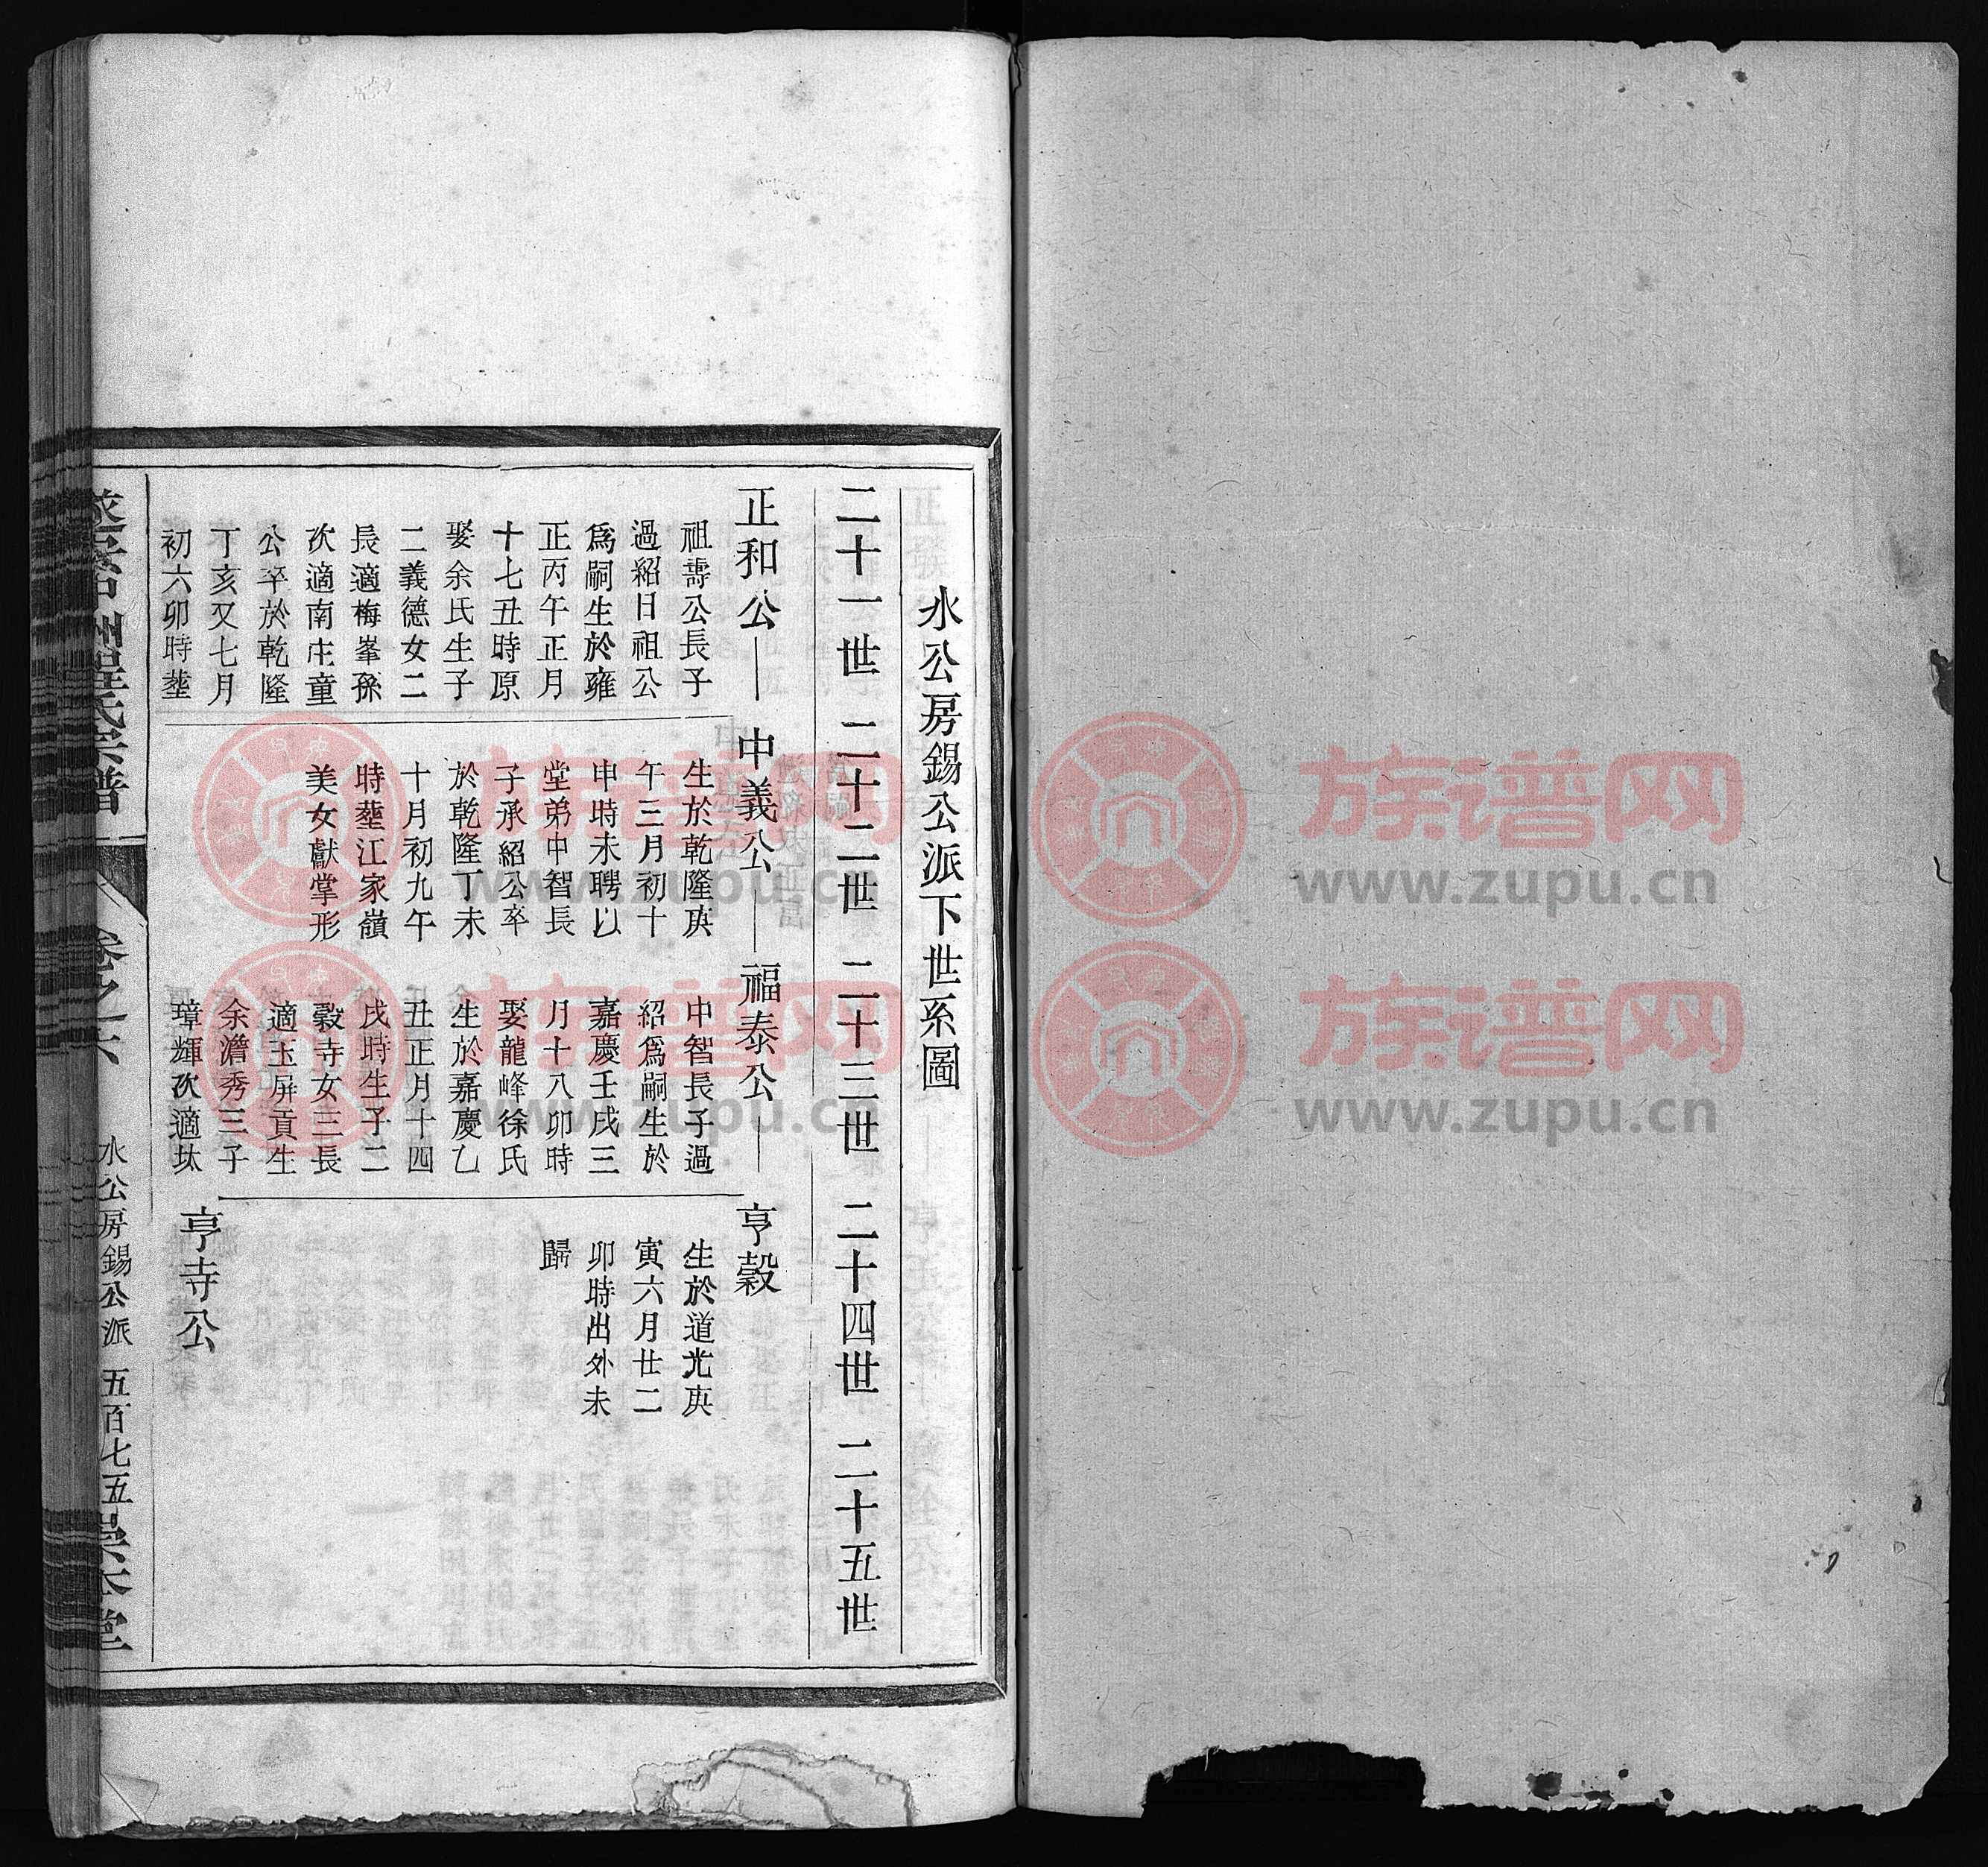 水公房錫公派下世系圖
二十一世 二十二世 二十三世 二十四世 二十五世
正和公 中義公 福泰公 亨穀
祖壽公長子
過紹日祖公
爲嗣生於雍
正丙午正月
十七丑時原
娶余氏生子
二義德女二
長適梅峯孫
次適南庄童
公卒於乾隆
丁亥又七月
初六卯時塟
生於乾隆庚
午三月初十
申時未聘以
堂弟中智長
子承紹公卒
於乾隆丁未
十月初九午
時塟江家嶺
美女獻掌形
中智長子過
紹爲嗣生於
嘉慶壬戌三
月十八卯時
娶龍峰徐氏
生於嘉慶乙
丑正月十四
戌時生子二
穀寺女三長
適玉屏貢生
余澹秀三子
璋輝次適㘰
生於道光庚
寅六月廿二
卯時出外未
歸
亨寺公
氏宗譜
卷之六
水公房錫公派
五百七五
堂
族谱网
www.zupu.cn
族谱网
www.zupu.cn
族谱网
www.zupu.cn
族谱网
www.zupu.cn